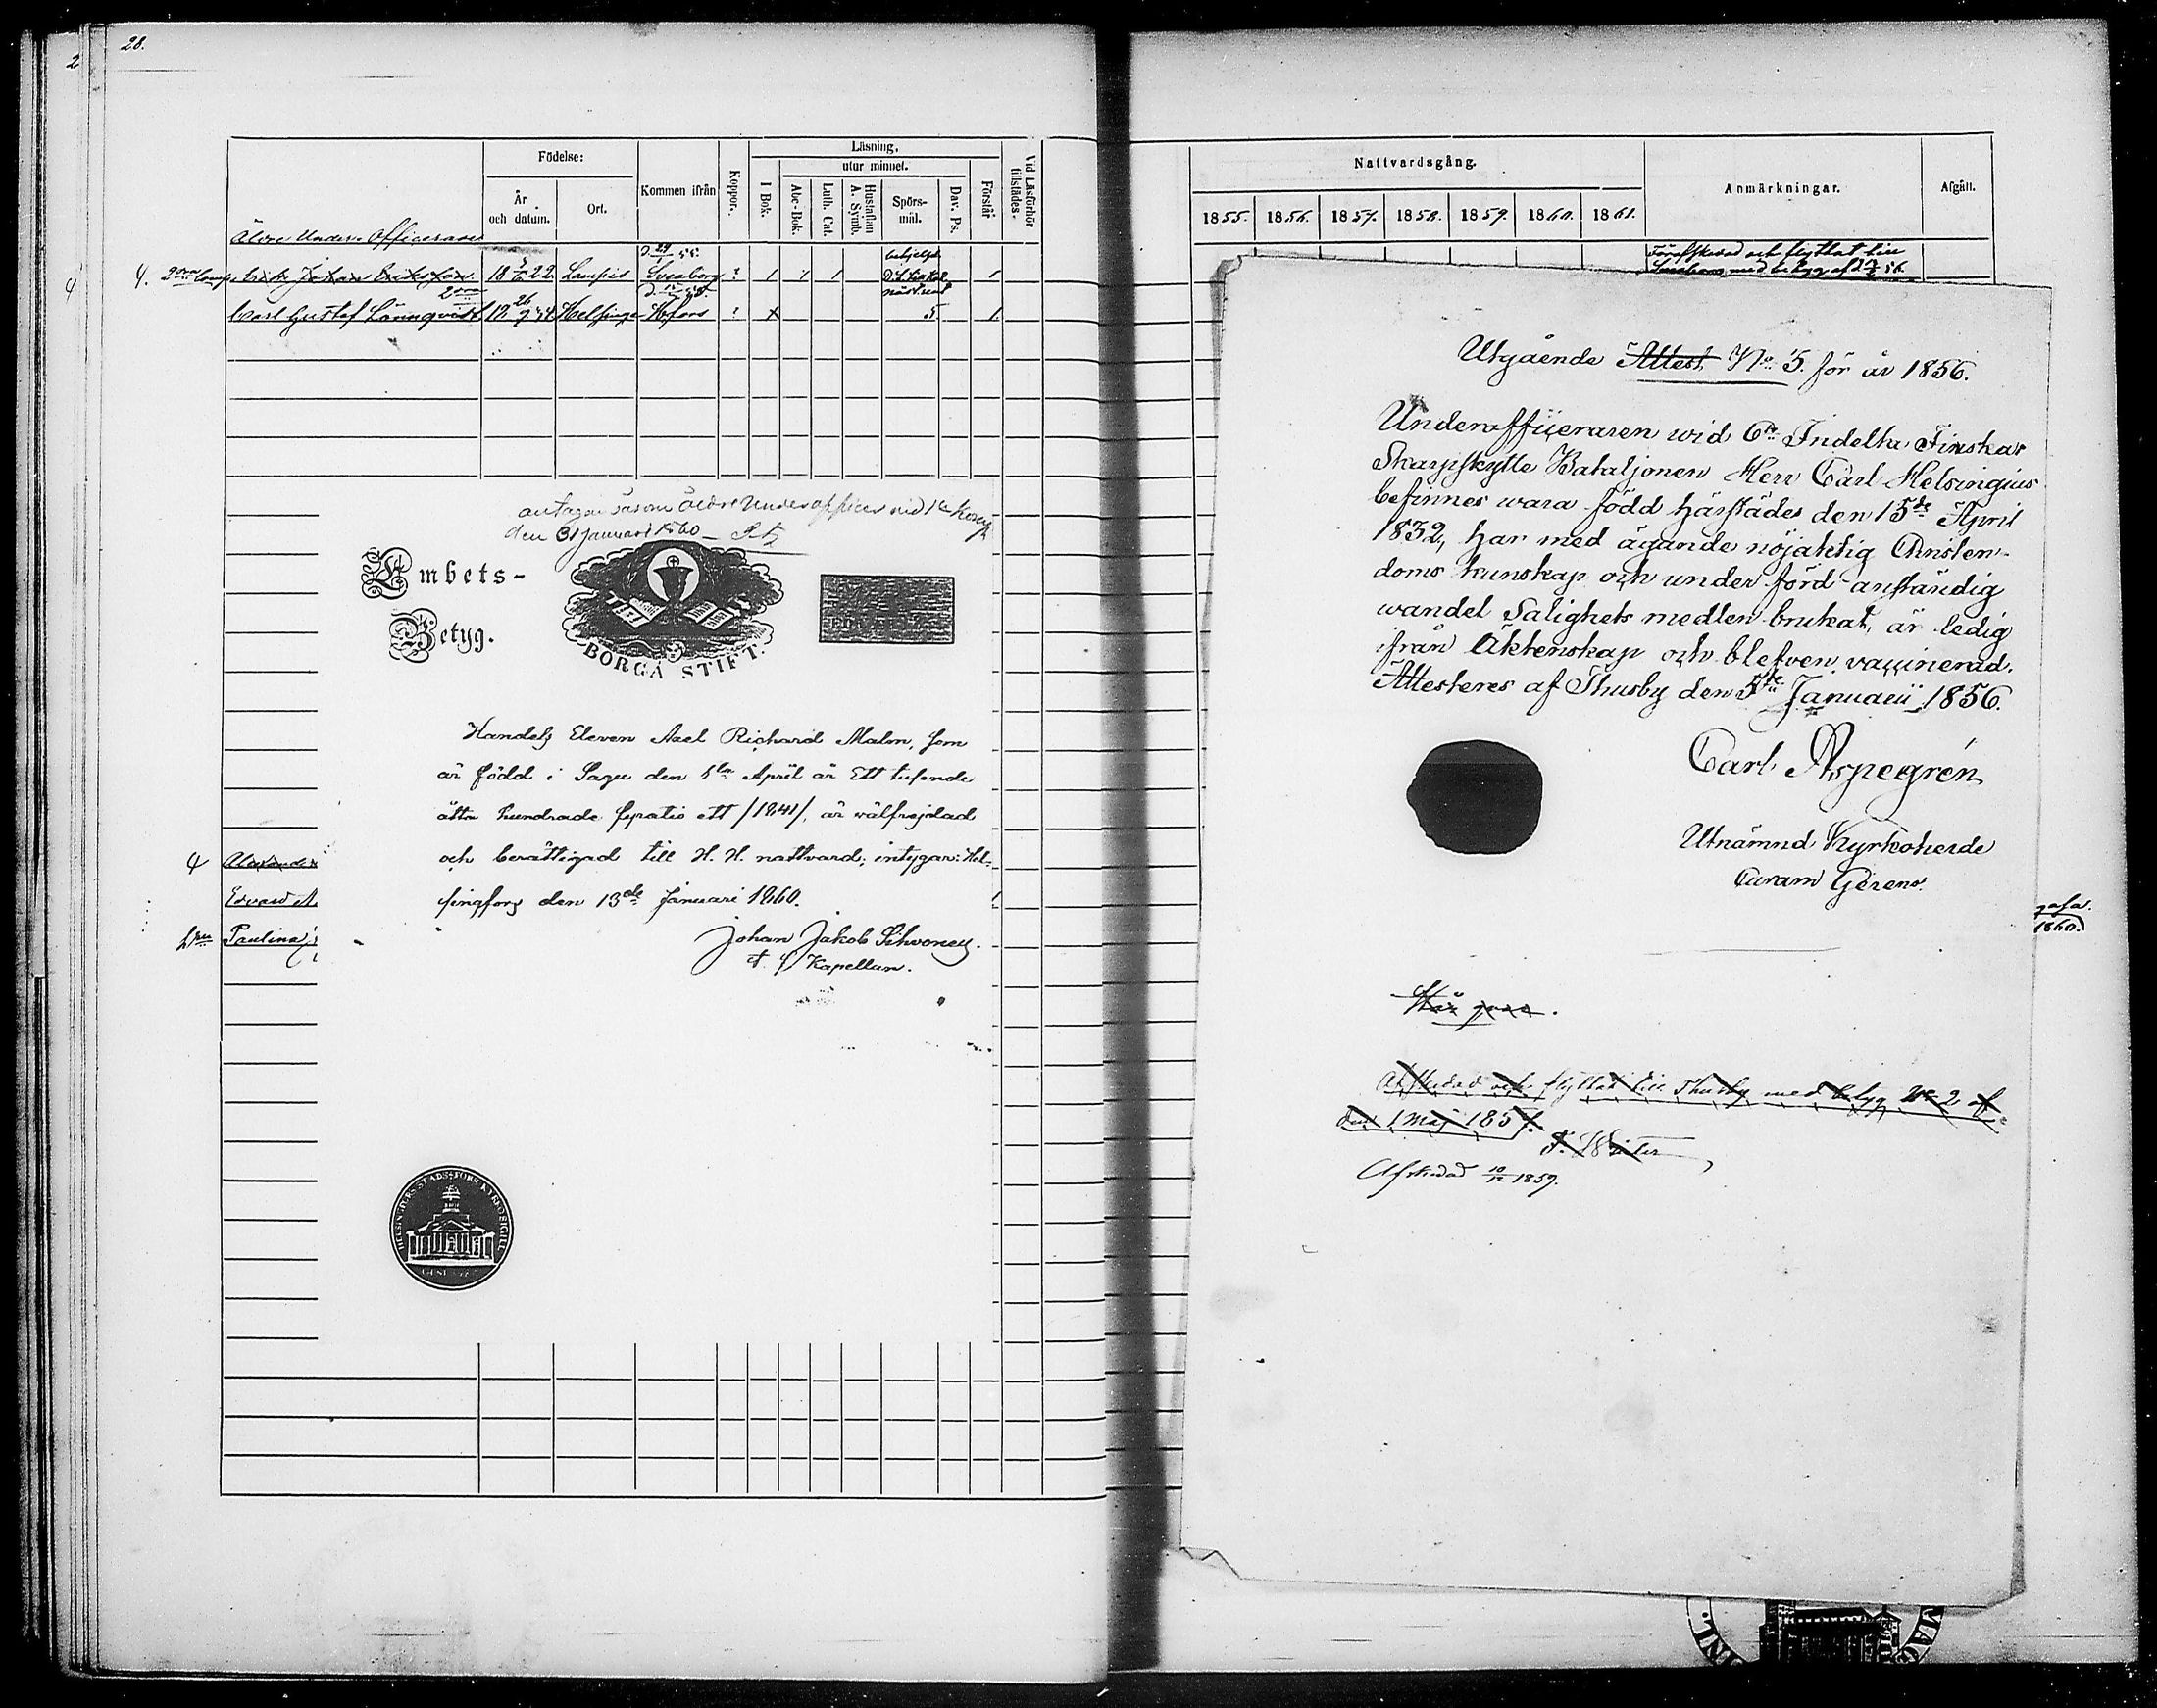 28.
2
Födelse:
År och datum.
Ort.
Kommen ifrån
Koppor.
Läsning,
I Bok.
utur minnet.
Abc-Bok.
Luth. Cat.
Hustaflan A. Symb.
Spörs-mål.
Dav. Ps.
Förstår
Vid Läsförhör tillstädes.
Äldre Under-Officerare
4
4. Erik Johan Eriksson 18 22 Lampis Sveaborg
Carl Gustaf Lönnqvist Helsinge Hfors
antagen såsom äldre underofficer vid
den 31 Januari 1860
Embets-
Betyg.
BORGÅ STIFT.
Handels Eleven Axel Richard Malm, som
är född i Sagu den 5te April år Ett tusende
åtta hundrade fyratio ett /1841/, är välfrejdad
och berättigad till H. H. nattvard; intygar: Hel-
singfors den 13de Januari 1860.
Johan Jakob Sihvonen.
Kapellan.
4 Alexander
Edvard M.
Paulina
HELSINGFORS STADSFÖRS. KYRKOSIGILL
Nattvardsgång.
1855. 1856. 1857. 1858. 1859. 1860. 1861.
Anmärkningar.
Afgått.
och flyttat till
Sveaborg med betyg af
Utgående Attest No 5. för år 1856.
Underofficeraren wid 6te Indelta Finska
Skarpskytte Bataljonen Herr Carl Helsingius
befinnes wara född härstädes den 15de April
1832, har med ägande nöjaktig Christen-
doms kunskap och under förd anständig
wandel Salighets medlen brukat, är ledig
ifrån Äktenskap och blefven vaccinerad.
Attesteres af Thusby den 5te Januarii 1856.
Carl Aspegrén
Utnämnd Kyrkoherde
Curam Gerens.
1860.
Afskedad och flyttat till Thusby med betyg No 2 af
den 1 Maj 185
Afskedad 10/12 1859.